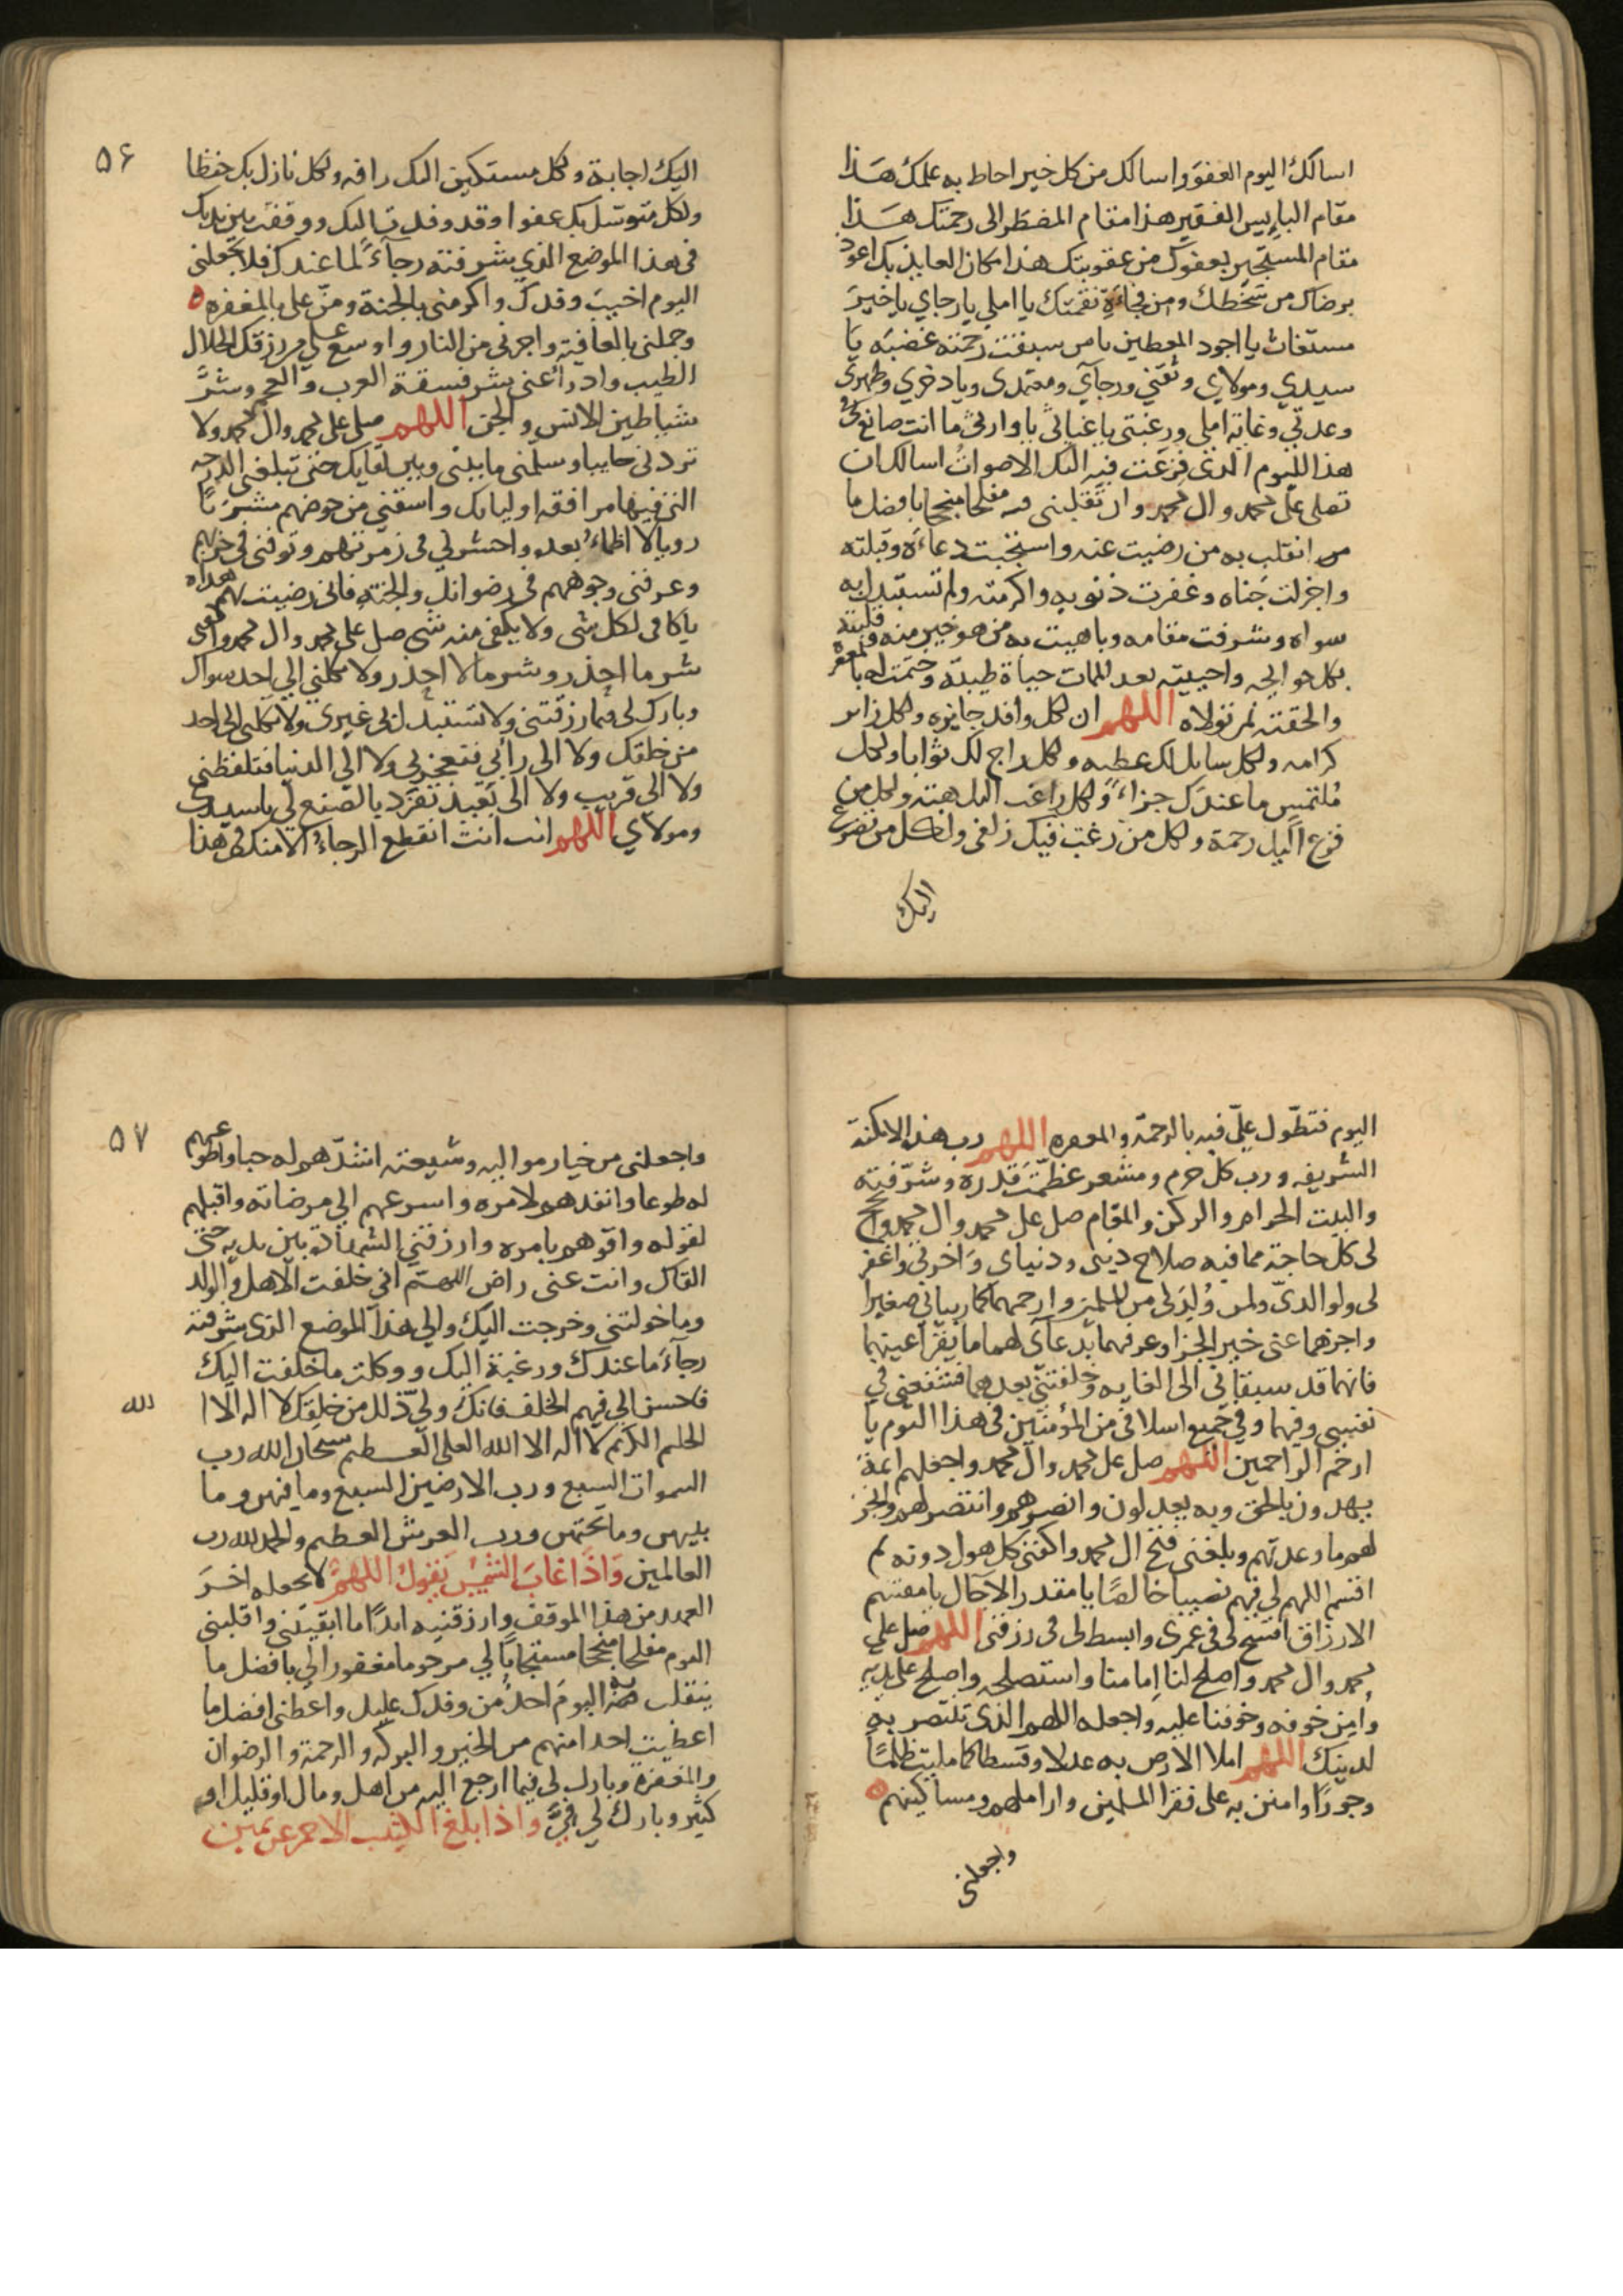 اسالك اليوم العفو واسالك من كل خير احاط به علمك هذا
مقام البايس الفقير هذا مقام المضطر الى رحمتك هذا
مقام المستجير بعفوك من عقوبتك هذا مكان العايذ بك اعوذ
برضاك من سخطك ومن فجاءة نقمتك يا املي يا رجاي يا خير
مستغاث يا اجود المعطين يا من سبقت رحمته غضبه يا
سيدي ومولاي وثقتي ورجآي ومعتمدي ويا ذخري وظهري
وعدتي وغاية املي ورغبتي يا غياثي يا وارثي ما انت صانع في
هذا اليوم الذي فزعت فيه اليك الاصوات اسالك ان
تصلى على محمد وال محمد وان تقلبنى فيه مفلحا منجحا بافضل ما
من انقلب به من رضيت عنه واستجبت دعاءه وقبلته
واجزلت حباه وغفرت ذنوبه واكرمته ولم تستبدل به
سواه وشرفت مقامه وباهيت به من هو خير منه وقلبته
بكل حوايجه واحييته بعد الممات حياة طيبة وختمت له بالمغفرة
والحقته بمن تولاه اللهم ان لكل وافد جايزه ولكل زاير
كرامه ولكل سايل لك عطيه ولكل راج لك ثوابا ولكل
ملتمس ما عندك جزاء ولكل راغب اليك هبته ولكل من
فزع اليك رحمة ولكل من رغب فيك زلفى ولكل من تضرع
اليك
۵۶
اليك اجابة ولكل مستكين اليك رافه ولكل نازل بك حفظا
ولكل متوسل بك عفوا وقد وفدت اليك ووقفت بين يديك
فى هذا الموضع الذي شرفته رجآءً لما عندك فلا تجعلنى
اليوم اخيب وفدك واكرمنى بالجنة ومنّ على بالمغفره
وجملنى بالعافية واجرنى من النار واوسع علي من رزقك الحلال
الطيب وادرا عنى شر فسقة العرب والعجم وشر
شياطين الانس والجن اللهم صل على محمد وال محمد ولا
تردنى خايبا وسلمنى ما بينى وبين لقايك حتى تبلغنى الدرجه
التى فيها مرافقة اوليايك واسقنى من حوضهم مشربًا
رويا لا اظماء بعده واحشرني فى زمرتهم وتوفنى فى حزبهم
وعرفنى وجوههم فى رضوانك والجنة فانى رضيت بهم هداه
يا كافى لكل شى ولا يكفى منه شى صل على محمد وال محمد واكفنى
شر ما احذر وشر ما لا احذر ولا تكلني الي احد سواك
وبارك لى فيما رزقتنى ولا تستبدل بى غيرى ولا تكلنى الى احد
من خلقك ولا الى رائي فتعجزني ولا الي الدنيا فتلفظني
ولا الى قريب ولا الى بعيد تفرد بالصنع لي يا سيدى
ومولاي اللهم انت انت انقطع الرجاء الا منك فى هذا
اليوم فتطول عليّ فيه بالرحمة والمغفره اللهم رب هذه الامكنة
الشريفه ورب كل حرم ومشعر عظّمت قدره وشرّفته
والبيت الحرام والركن والمقام صل على محمد وال محمد وانجح
لى كل حاجة مما فيه صلاح دينى ودنياى واخرتى واغفر
لى ولوالدىّ ولمن ولدنى من المسلمين وارحمهما كما ربيانى صغيرا
واجزهما عنى خير الجزا وعرفهما بدعآى لهما ما يقر اعينهما
فانهما قد سبقانى الى الغايه وخلفتنى بعدهما فشفعنى في
نفسى وفيهما وفي جميع اسلافى من المؤمنين فى هذا اليوم يا
ارحم الراحمين اللهم صل على محمد وال محمد واجعلهم ائمة
يهدون بالحق وبه يعدلون وانصرهم وانتصر لهم وانجز
لهم ما وعدتهم وبلغنى فتح ال محمد واكفنى كل هول دونه ثم
اقسم اللهم لى فيهم نصيبا خالصًا يا مقدر الاجال يا مقسم
الارزاق افسح لى فى عمرى وابسط لى فى رزقى اللهم صل على
محمد وال محمد واصلح لنا امامنا واستصلحه واصلح على يديه
وامن خوفه وخوفنا عليه واجعله اللهم الذى تنتصر به
لدينك اللهم املا الارض به عدلا وقسطا كما ملئت ظلمًا
وجورًا وامنن به على فقرا المسلمين واراملهم ومساكينهم
واجعلنى
۵۷
واجعلنى من خيار مواليه وشيعته اشدّهم له حبا واطوعهم
له طوعا وانفذهم لامره واسرعهم الي مرضاته واقبلهم
لقوله واقومهم بامره وارزقني الشهادة بين يديه حتى
القاك وانت عنى راض اللهم انى خلفت الاهل والولد
وما خولتنى وخرجت اليك والي هذا الموضع الذى شرفته
رجآء ما عندك ورغبة اليك ووكلت ما خلفت اليك
فاحسن الي فيهم الخلف فانك وليّ ذلك من خلقك لا اله الا
الله
الحلم الكريم لا اله الا الله العلى العظيم سبحان الله رب
السموات السبع ورب الارضين السبع وما فيهن وما
بينهن وما تحتهن ورب العرش العظيم والحمد لله رب
العالمين واذا غاب الشمس يقول اللهم لا تجعله اخر
العهد من هذا الموقف وارزقنيه ابدًا ما ابقيتنى واقلبنى
اليوم مفلحا منجحا مستجابًا لي مرحوما مغفورا لي بافضل ما
ينقلب به اليوم احد من وفدك عليك واعطنى افضل ما
اعطيت احدا منهم من الخير والبركه والرحمة والرضوان
والمغفرة وبارك لى فيما ارجع اليه من اهل ومال او قليل او
كثير وبارك لي فيّ واذا بلغ الكثيب الاحمر عن يمين